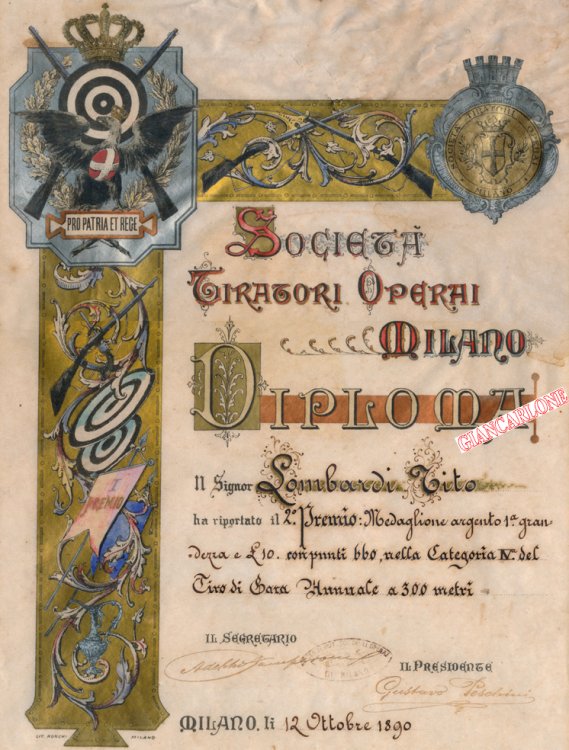 PRO PATRIA ET REGE
SOCIETÀ TIRATORI
MILANO
SOCIETÀ
TIRATORI OPERAI
MILANO
DIPLOMA
GIANCARLONE
Il Signor Lombardi Tito
ha riportato il 2º Premio: Medaglione argento 1ª gran
dezza e £ 10. con punti 660, nella Categoria IV. del
Tiro di Gara Annuale a 300 metri
I
PREMIO
IL SEGRETARIO
Adelchi
DI MILANO
IL PRESIDENTE
Gustavo Peschini
MILANO, li 12 Ottobre 1890
LIT. RONCHI MILANO